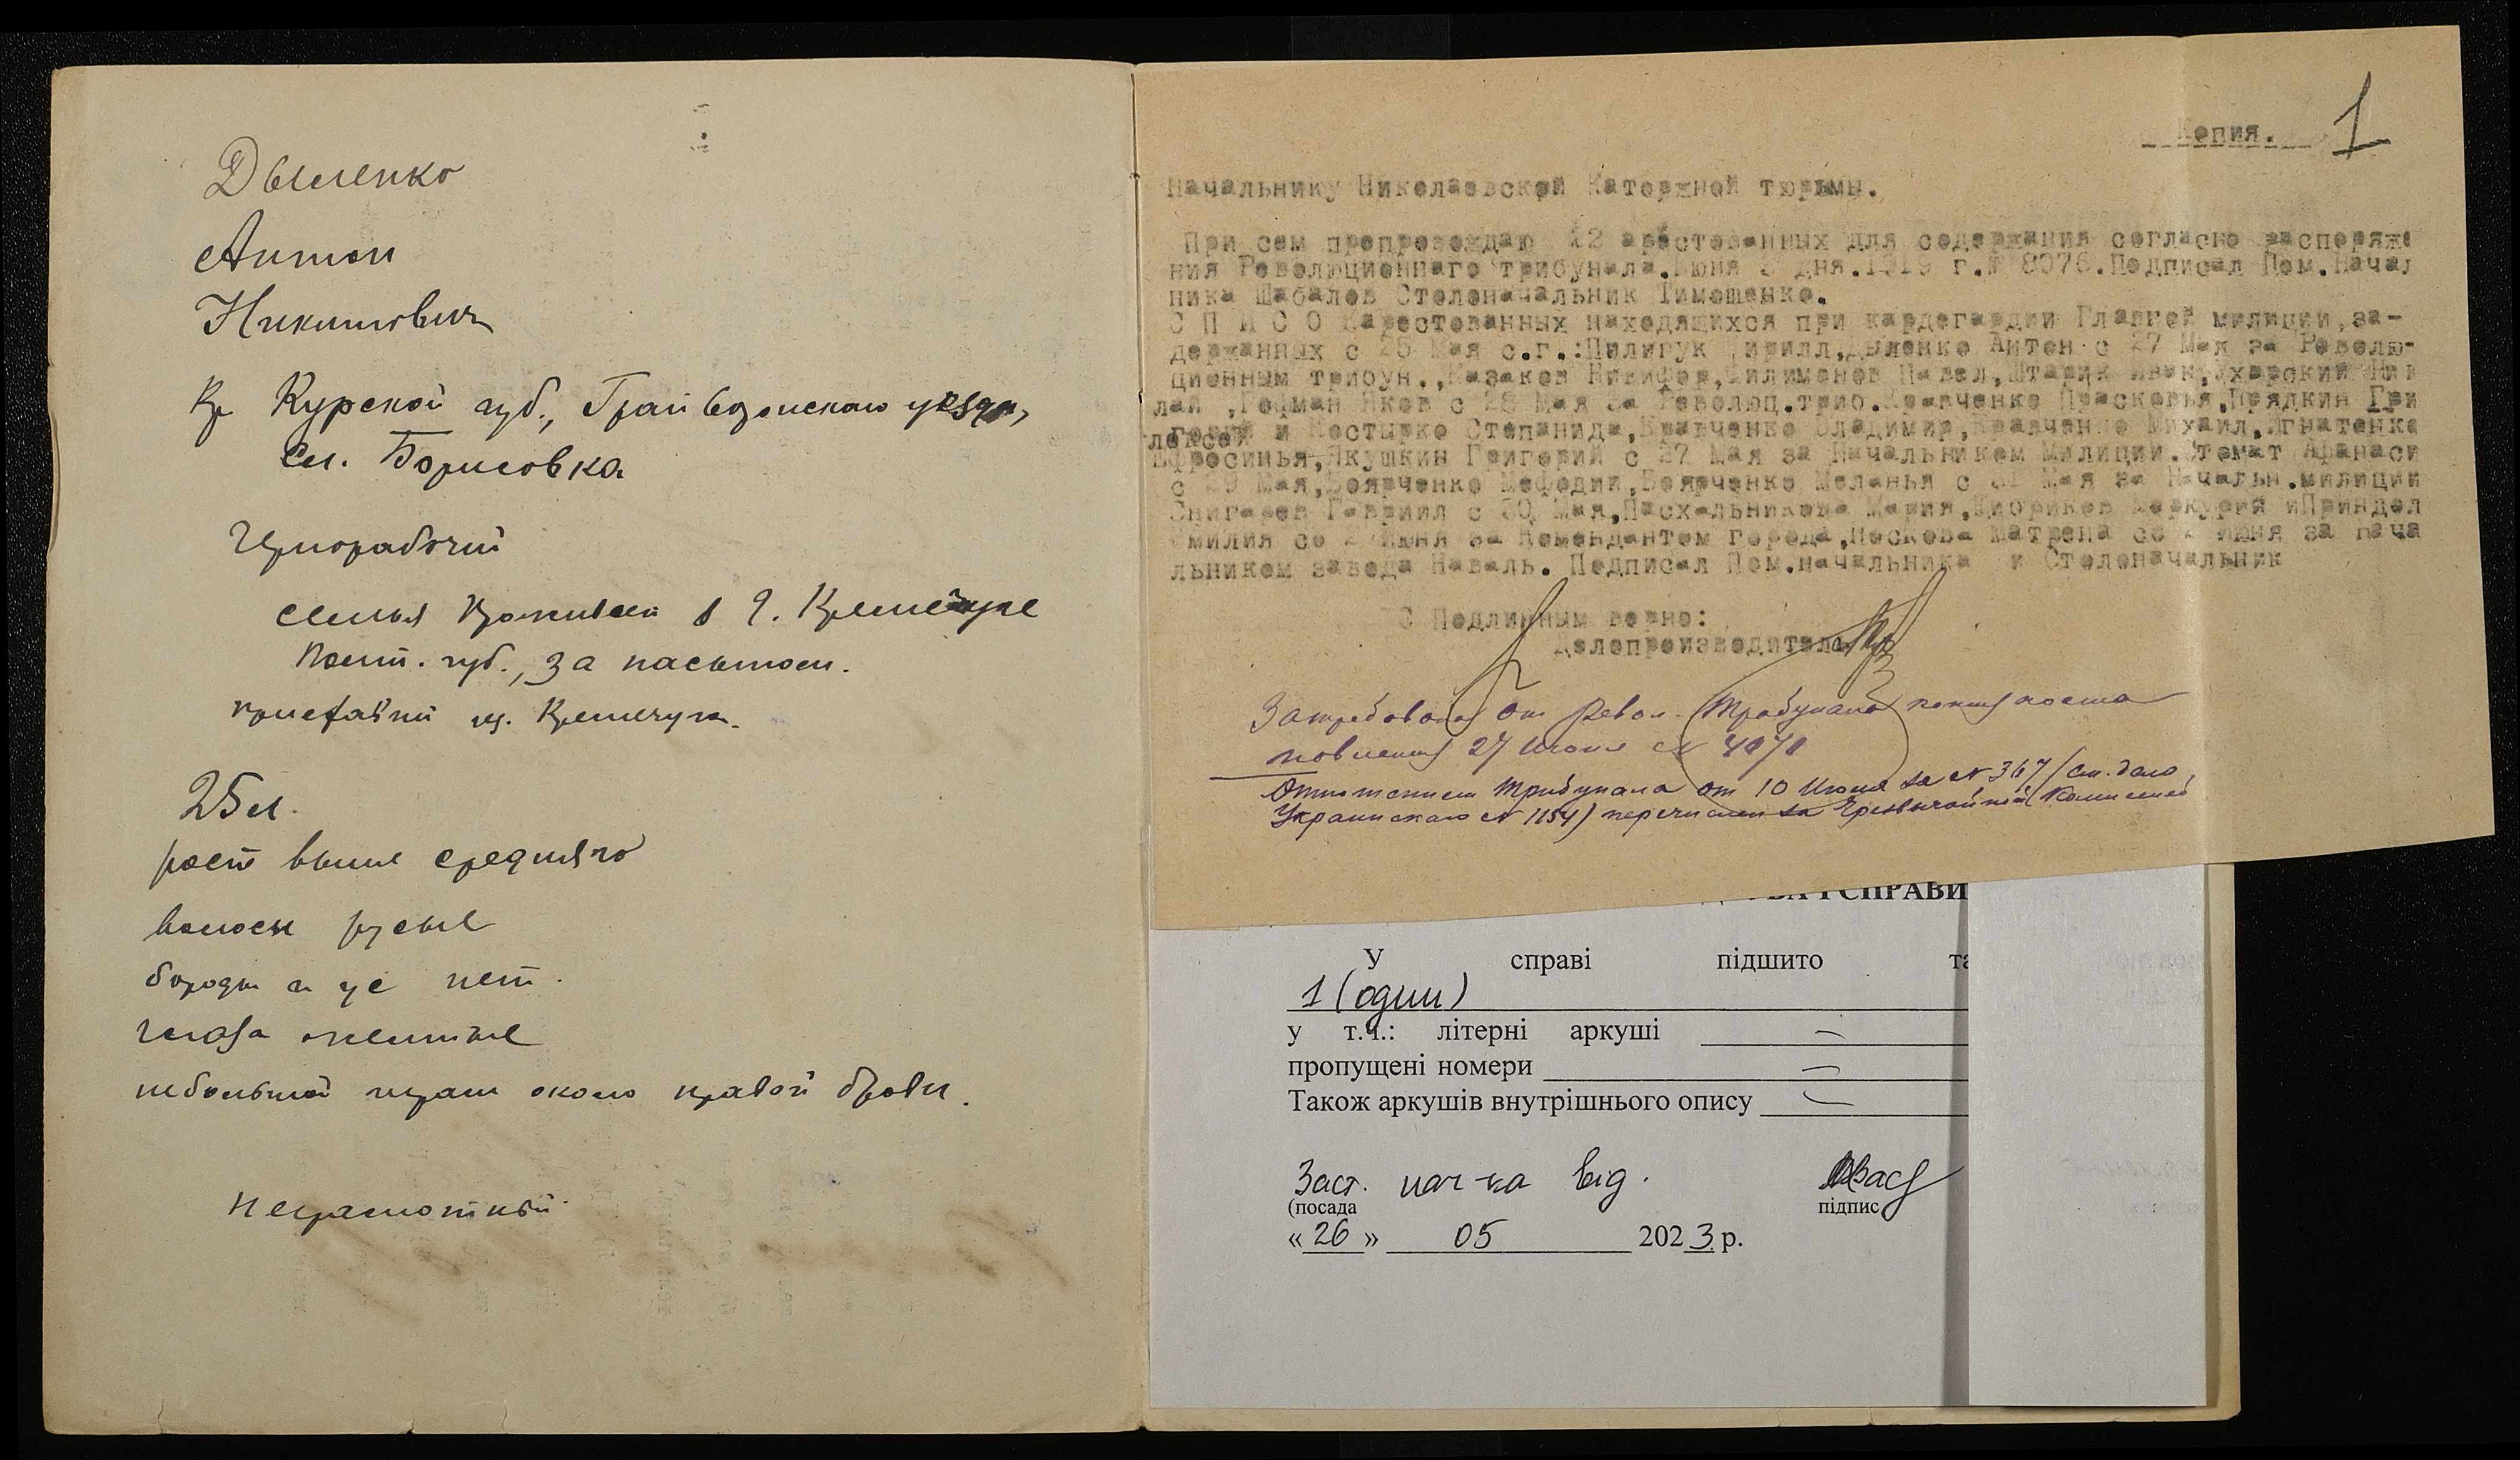 Дыленко
Антон
Никитович
Кр Курской губ., Грайворонскаго уезда,
Сл. Борисовка
Чернорабочий
семья проживает в г. Кременчуге
Полт. губ., за насыпом.
приезжий из Кременчуга.
25 л.
рост выше средняго
волосы русые
бороды и ус нет.
глаза желтые
небольшой шрам около правой брови.
неграмотный
Копия. 1
Начальнику Николаевской Каторжной тюрьмы.
При сем препровождаю 12 арестованных для содержания согласно распоряже
ния Революционнаго трибунала. Июня 3 дня. 1919 г. № 8076. Подписал Пом. Начал
ника Шабалов Столоначальник Тимошенко.
С П И С О Карестованных находящихся при кардегардии Главной милиции, за-
держанных с 25 Мая с.г.: Пилипук Кирилл, Дыленко Антон с 27 Мая за Револю-
ционным трибун., Казаков Никифор, Филимонов Павел, Штарик Иван, Ухарский Ник
лай , Гофман Яков с 28 Мая за Революц. триб. Кравченко Прасковья, Прядкин Гри
горий и Костырко Степанида, Кравченко Владимир, Кравченко Михаил, Игнатенко
лексей
Ефросинья, Якушкин Григорий с 27 Мая за Начальником Милиции. Стомат Афанаси
с 29 Мая, Боярченко Мефодий, Боярченко Меланья с 31 Мая за Начальн. милиции
Снигарев Гавриил с 30 Мая, Пасхальникова Мария, Меркурий иПриндел
Эмилия со 2 Июня за Комендантом города, Носкова Матрена со 2 Июня за нача
льником завода Наваль. Подписал Пом. начальника и Столоначальник
С Подлинным верно:
Делопроизводитель
Затребована от Револ. Трибунала копия поста
новления 27 Июня № 4070
Отношением трибунала от 10 Июня за № 367 (см. дело
Украинскаго № 1154) перечислен за Чрезвычайной Комиссией
У справі підшито та
1 (один)
у т.ч.: літерні аркуші —
пропущені номери —
Також аркушів внутрішнього опису —
Заст. нач-ка від.
(посада підпис
« 26 » 05 2023 р.